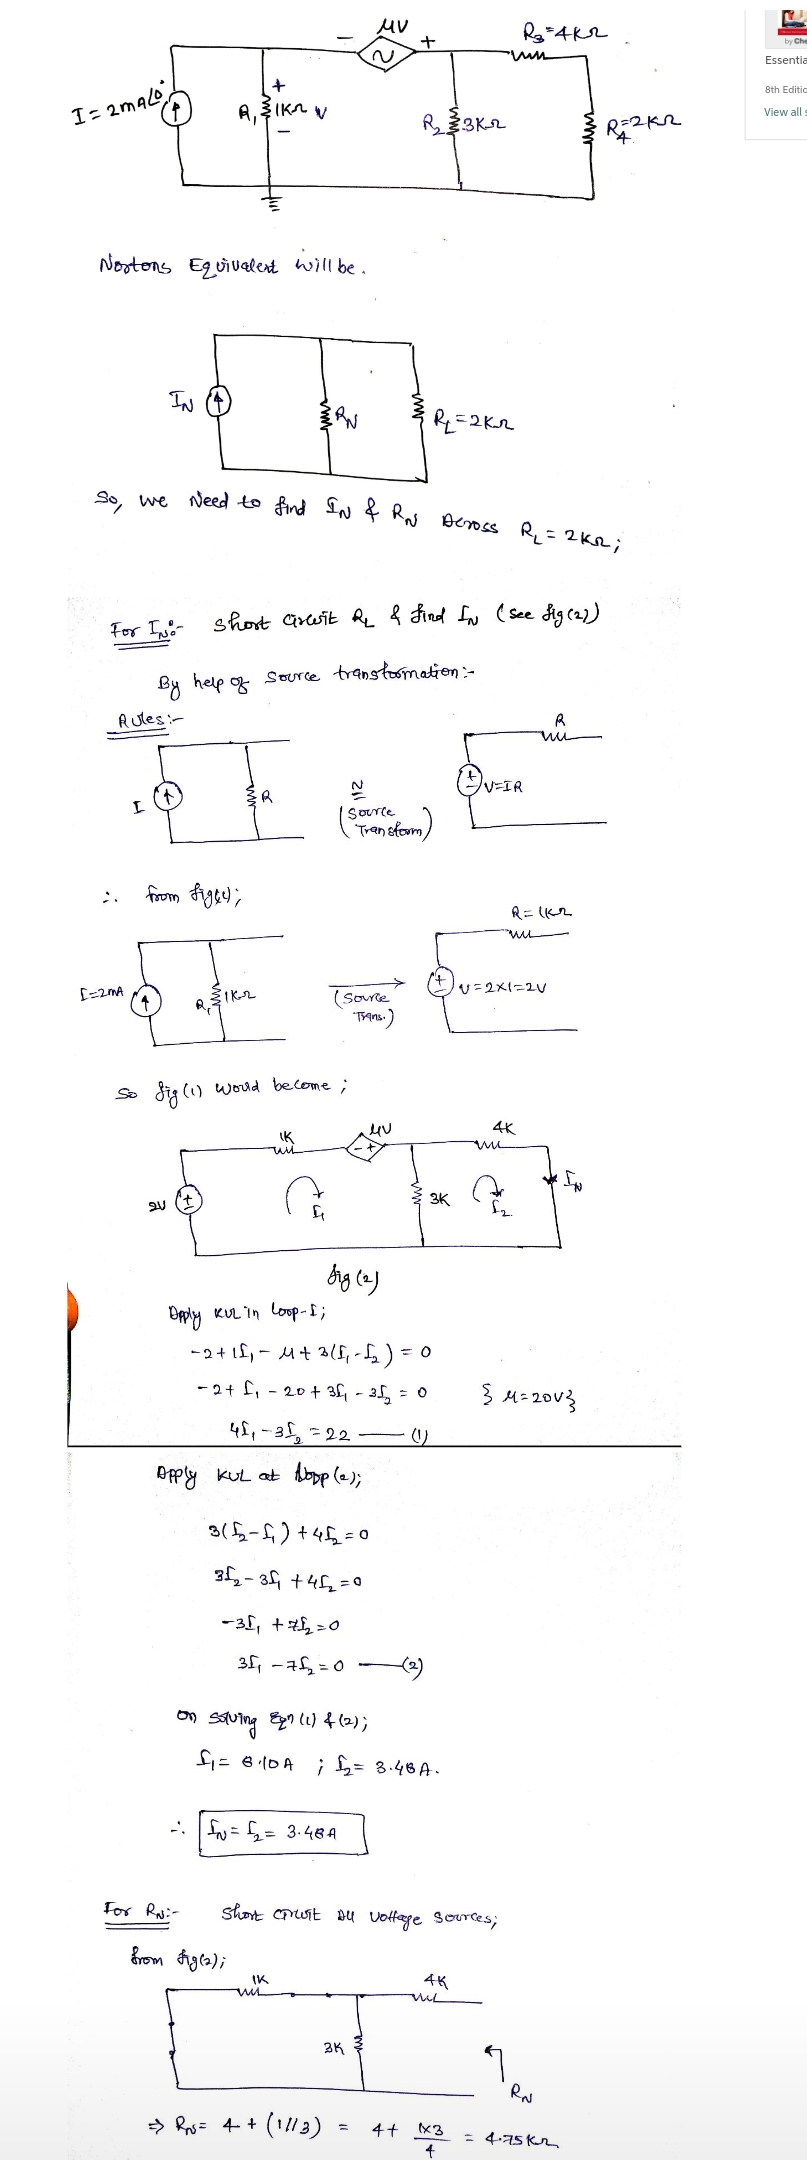 μV
R3=4KΩ
I = 2mA∠0°
R1 1KΩ V
R2 3KΩ
R4=2KΩ
by Che
Essentia
8th Editio
View all s
Nortons Equivalent will be.
IN
RN
RL=2KΩ
So, we Need to find IN & RN Across RL = 2KΩ;
For IN:- Short Circuit RL & find IN (see fig(2))
By help of Source transformation:-
Rules:-
I
R
≅
(Source Transform)
V=IR
R
∴ from fig(1);
I=2mA
R1 1KΩ
(Source Trans.)
R=1KΩ
V=2×1=2V
So fig(1) would become;
1K
μV
4K
2V
I1
3K
I2
IN
fig(2)
Apply KVL in loop-I;
-2+1I1-μ+3(I1-I2) = 0
-2+I1-20+3I1-3I2 = 0 {μ=20V}
4I1-3I2 = 22 — (1)
Apply KVL at loop(2);
3(I2-I1)+4I2=0
3I2-3I1+4I2=0
-3I1+7I2=0
3I1-7I2=0 — (2)
on solving Eqn (1) & (2);
I1= 8.10A ; I2= 3.48A.
∴ IN=I2= 3.48A
For RN:- Short circuit all voltage sources;
from fig(2);
1K
4K
3K
RN
⇒ RN= 4+(1//3) = 4+ 1×3/4 = 4.75KΩ